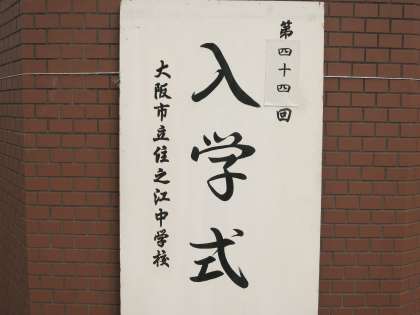 第四十四回
入学式
大阪市立住之江中学校